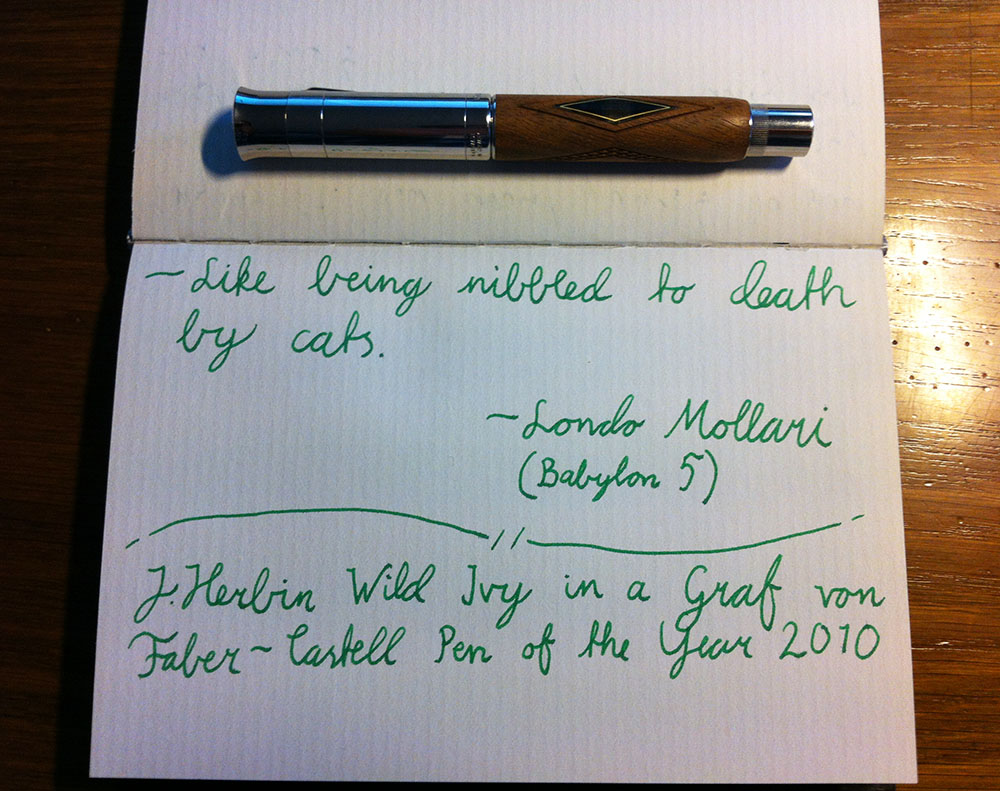 ~ Like being nibbled to death
by cats.
~ Londo Mollari
(Babylon 5)
J. Herbin Wild Ivy in a Graf von
Faber~Castell Pen of the Year 2010